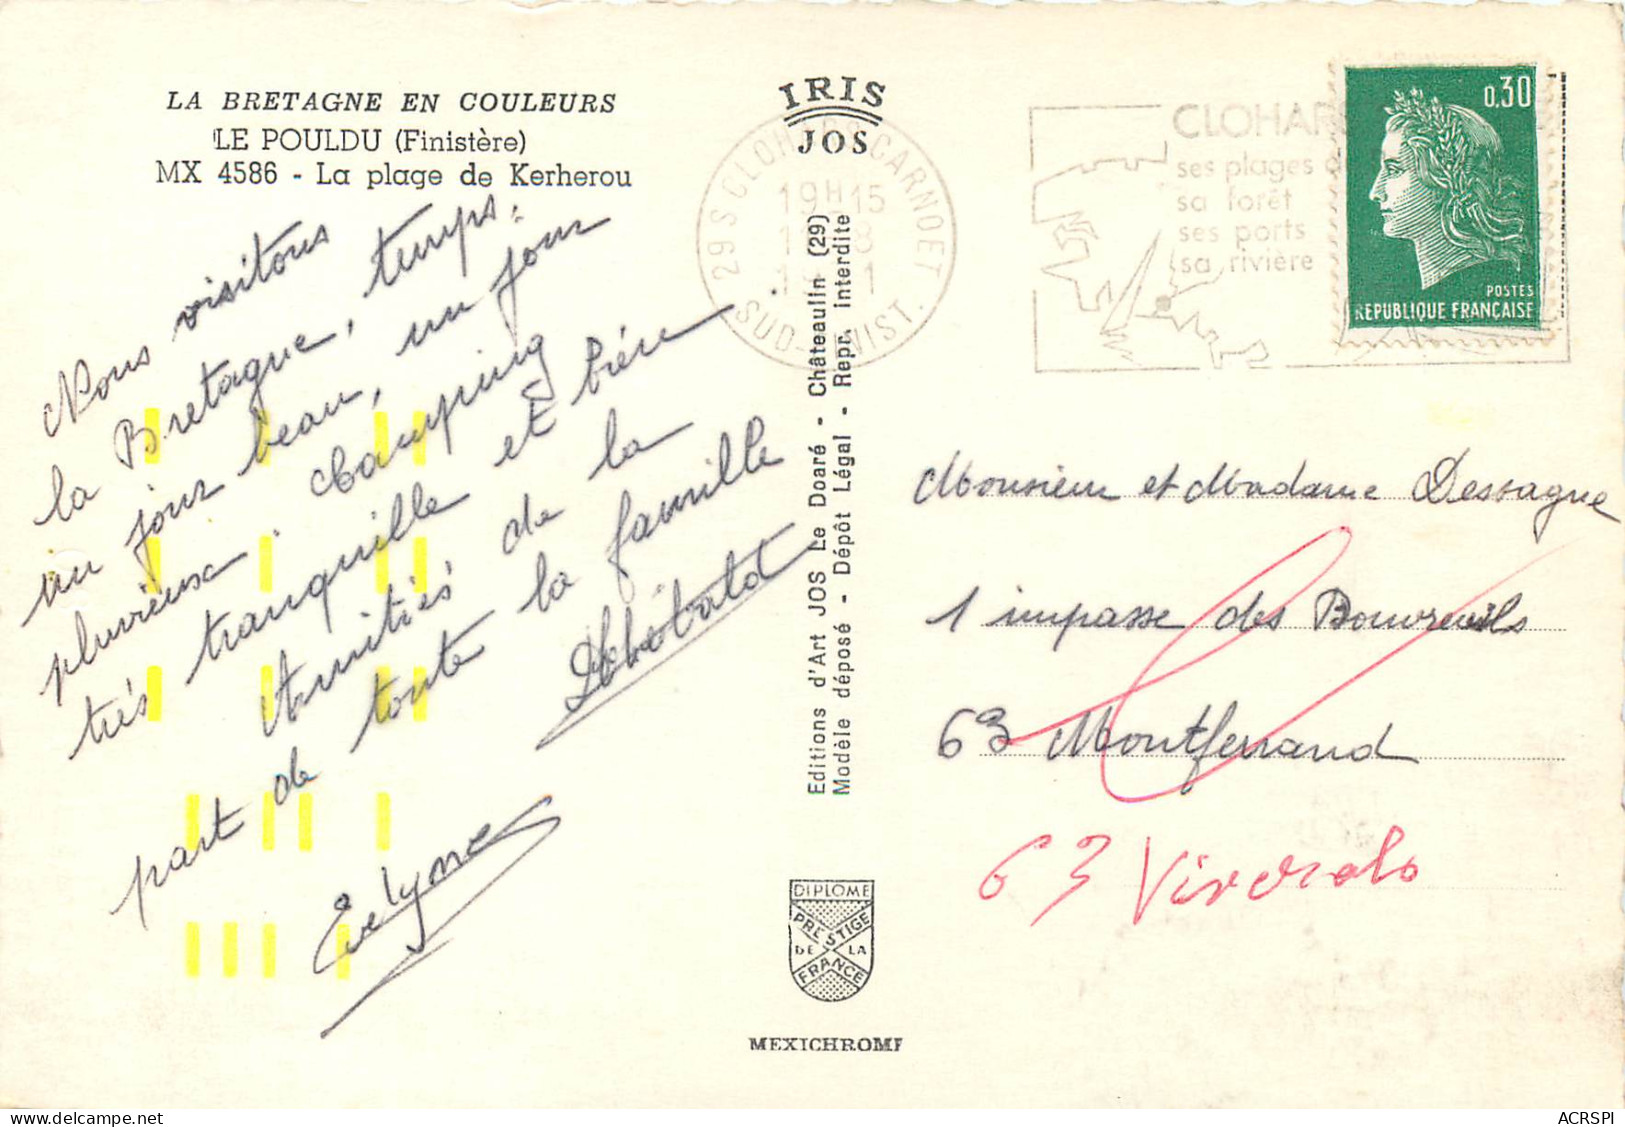 LA BRETAGNE EN COULEURS
LE POULDU (Finistère)
MX 4586 - La plage de Kerherou
Nous visitons
la Bretagne, temps:
un jour beau, un jour
pluvieux. Camping
très tranquille et bien
Amitiés de la
part de toute la famille
Evelyne
IRIS
JOS
29S CLOHARS CARNOET
19H15
SUD-FINIST.
Editions d'Art JOS Le Doaré - Châteaulin (29)
Modèle déposé - Dépôt Légal - Repr. interdite
DIPLOME
PRESTIGE
DE LA
FRANCE
MEXICHROME
CLOHARS
ses plages
sa forêt
ses ports
sa rivière
0,30
POSTES
REPUBLIQUE FRANÇAISE
Monsieur et Madame Dessagne
1 impasse des Bouvreuils
63 Montferrand
63 Viverols
ACRSPI